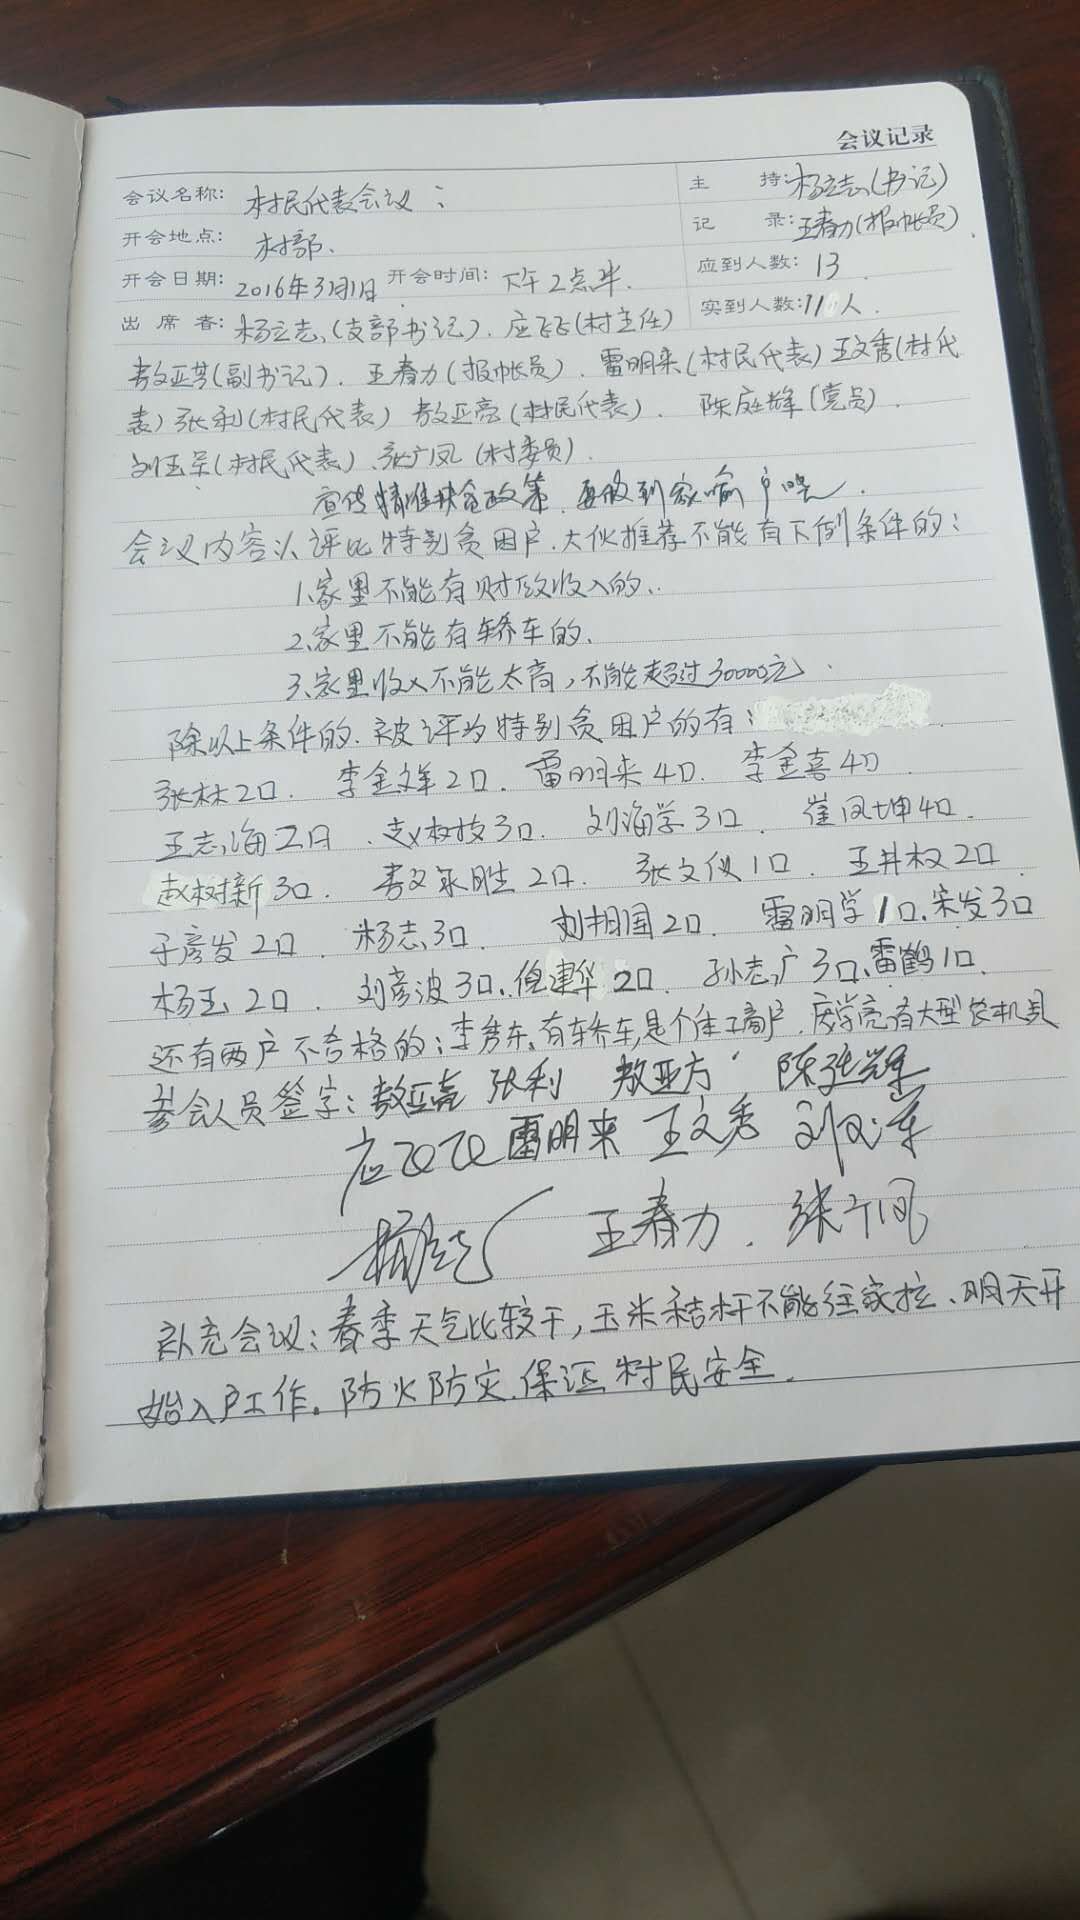 会议记录
会议名称: 村民代表会议: 主 持: 杨立志(书记)
开会地点: 村部. 记 录: 王春力(报帐员).
开会日期: 2016年3月1日 开会时间: 下午2点半. 应到人数: 13
出席者: 杨立志,(支部书记). 应飞飞(村主任) 实到人数: 11人.
敖亚芳(副书记). 王春力(报帐员). 雷明来(村民代表) 王文秀(村代
表) 张利(村民代表) 敖亚亮(村民代表). 陈庭辉(党员).
(村民代表) 张广凤(村委员).
宣传精准扶贫政策, 要做到家喻户晓.
会议内容: 评比特别贫困户. 大伙推荐不能有下例条件的:
1.家里不能有财政收入的.
2.家里不能有轿车的.
3.家里收入不能太高,不能超过30000元.
除以上条件的. 被评为特别贫困户的有:
张林2口. 李金祥2口. 雷明来4口. 李金喜4口
王志海2口. 赵树枝3口. 刘海学3口. 崔凤坤4口.
赵树新3口. 敖永胜2口. 张文仪1口. 王井权2口
于彦发2口 杨志3口. 刘相国2口. 雷明学1口. 宋发3口
杨玉2口. 刘彦波3口. 倪建华2口. 孙志广3口. 雷鹤1口.
还有两户不合格的: 李秀东,有轿车,是个体工商户. 学亮有大型农机具
参会人员签字: 敖亚亮 张利 敖亚方 陈庭辉
应飞飞 雷明来 王文秀
杨立志 王春力. 张广凤
补充会议: 春季天气比较干, 玉米秸杆不能往家拉、明天开
始入户工作。防火防灾. 保证村民安全.